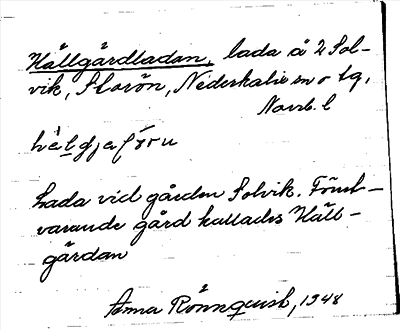 Hällgårdladan, lada å 2 Sol-
vik, Storön, Nederkalix sn o tg,
Norrb. l
Lada vid gården Solvik. Först-
varande gård kallades Häll-
gårdan
Anna Rönnquist, 1948